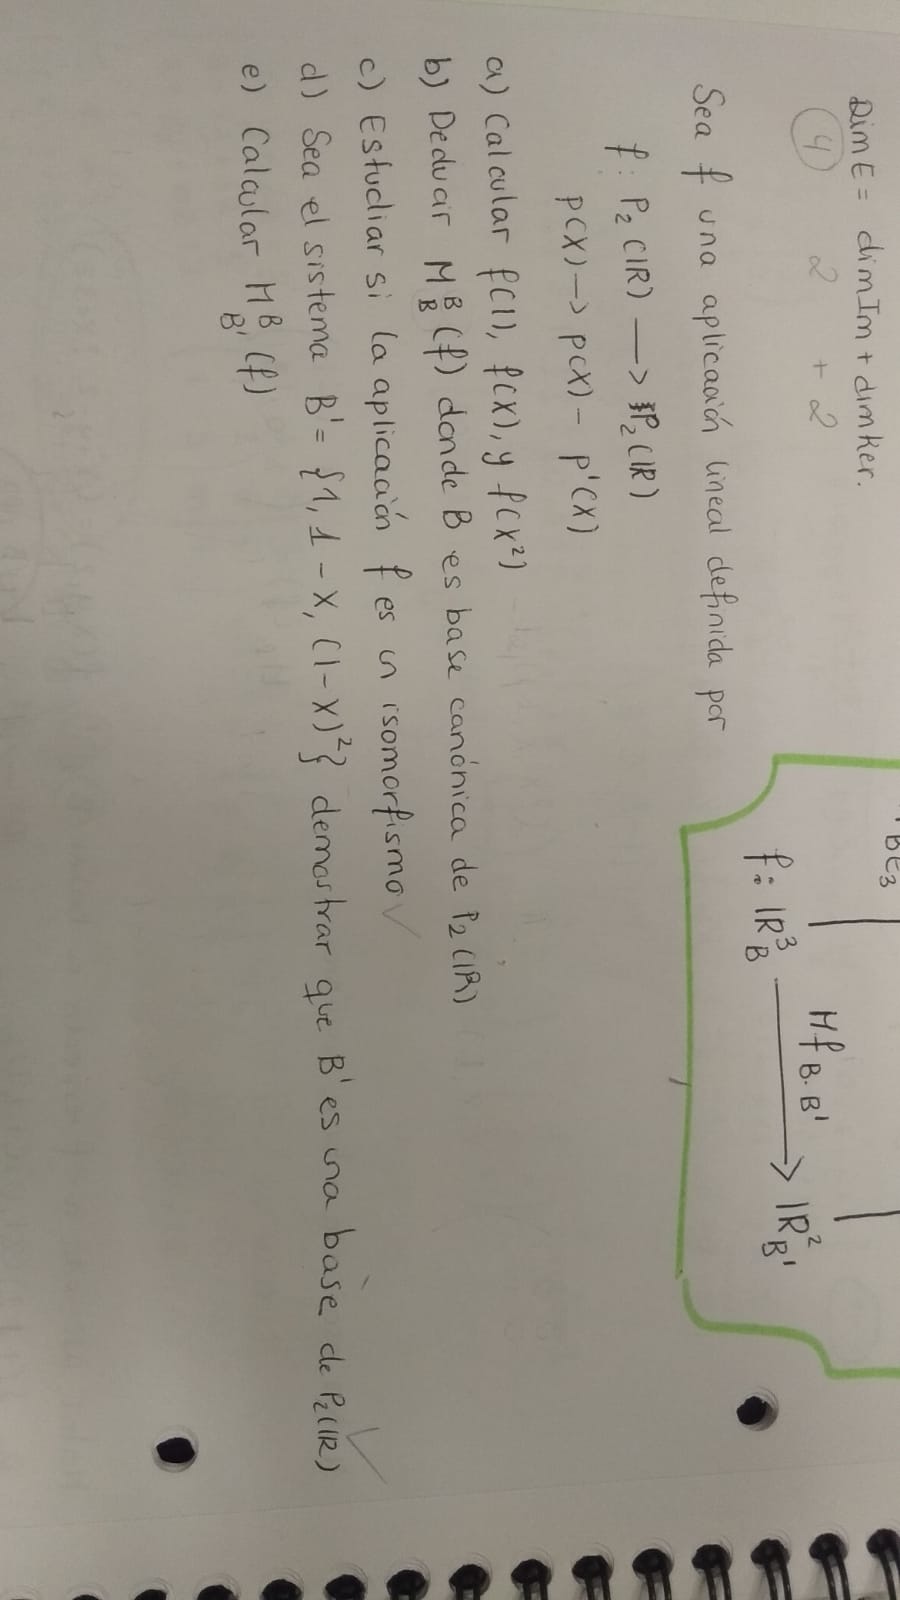 DimE = dimIm + dimKer.
4 2 + 2
BE3
f: ℝ³_B ⟶ ℝ²_B'
Mf_B.B'
Sea f una aplicación lineal definida por
f: P₂(ℝ) ⟶ P₂(ℝ)
p(x) → p(x) - p'(x)
a) Calcular f(1), f(x), y f(x²)
b) Deducir M_B^B (f) donde B es base canónica de P₂(ℝ)
c) Estudiar si la aplicación f es un isomorfismo ✓
d) Sea el sistema B' = {1, 1 - x, (1-x)²} demostrar que B' es una base de P₂(ℝ) ✓
e) Calcular M_B'^B (f)